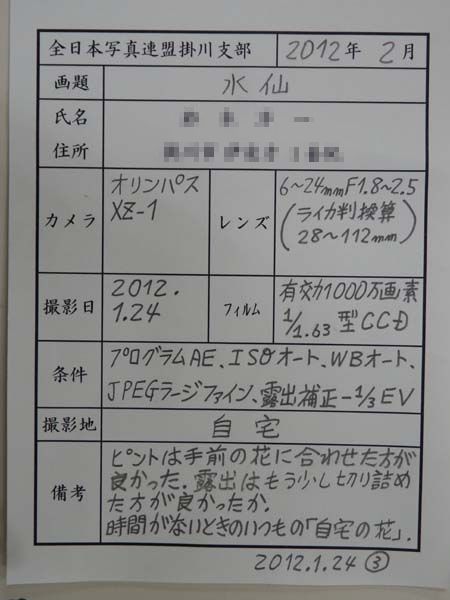 全日本写真連盟掛川支部 2012年 2月
画題 水仙
氏名
住所
カメラ オリンパス XZ-1
レンズ 6~24mmF1.8~2.5
(ライカ判換算
28~112mm)
撮影日 2012.
1.24
フィルム 有効1000万画素
1/1.63型CCD
条件 プログラムAE、ISOオート、WBオート、
JPEGラージファイン、露出補正-1/3EV
撮影地 自宅
備考 ピントは手前の花に合わせた方が
良かった.露出はもう少し切り詰め
た方が良かったか.
時間がないときのいつもの「自宅の花」.
2012.1.24 ③